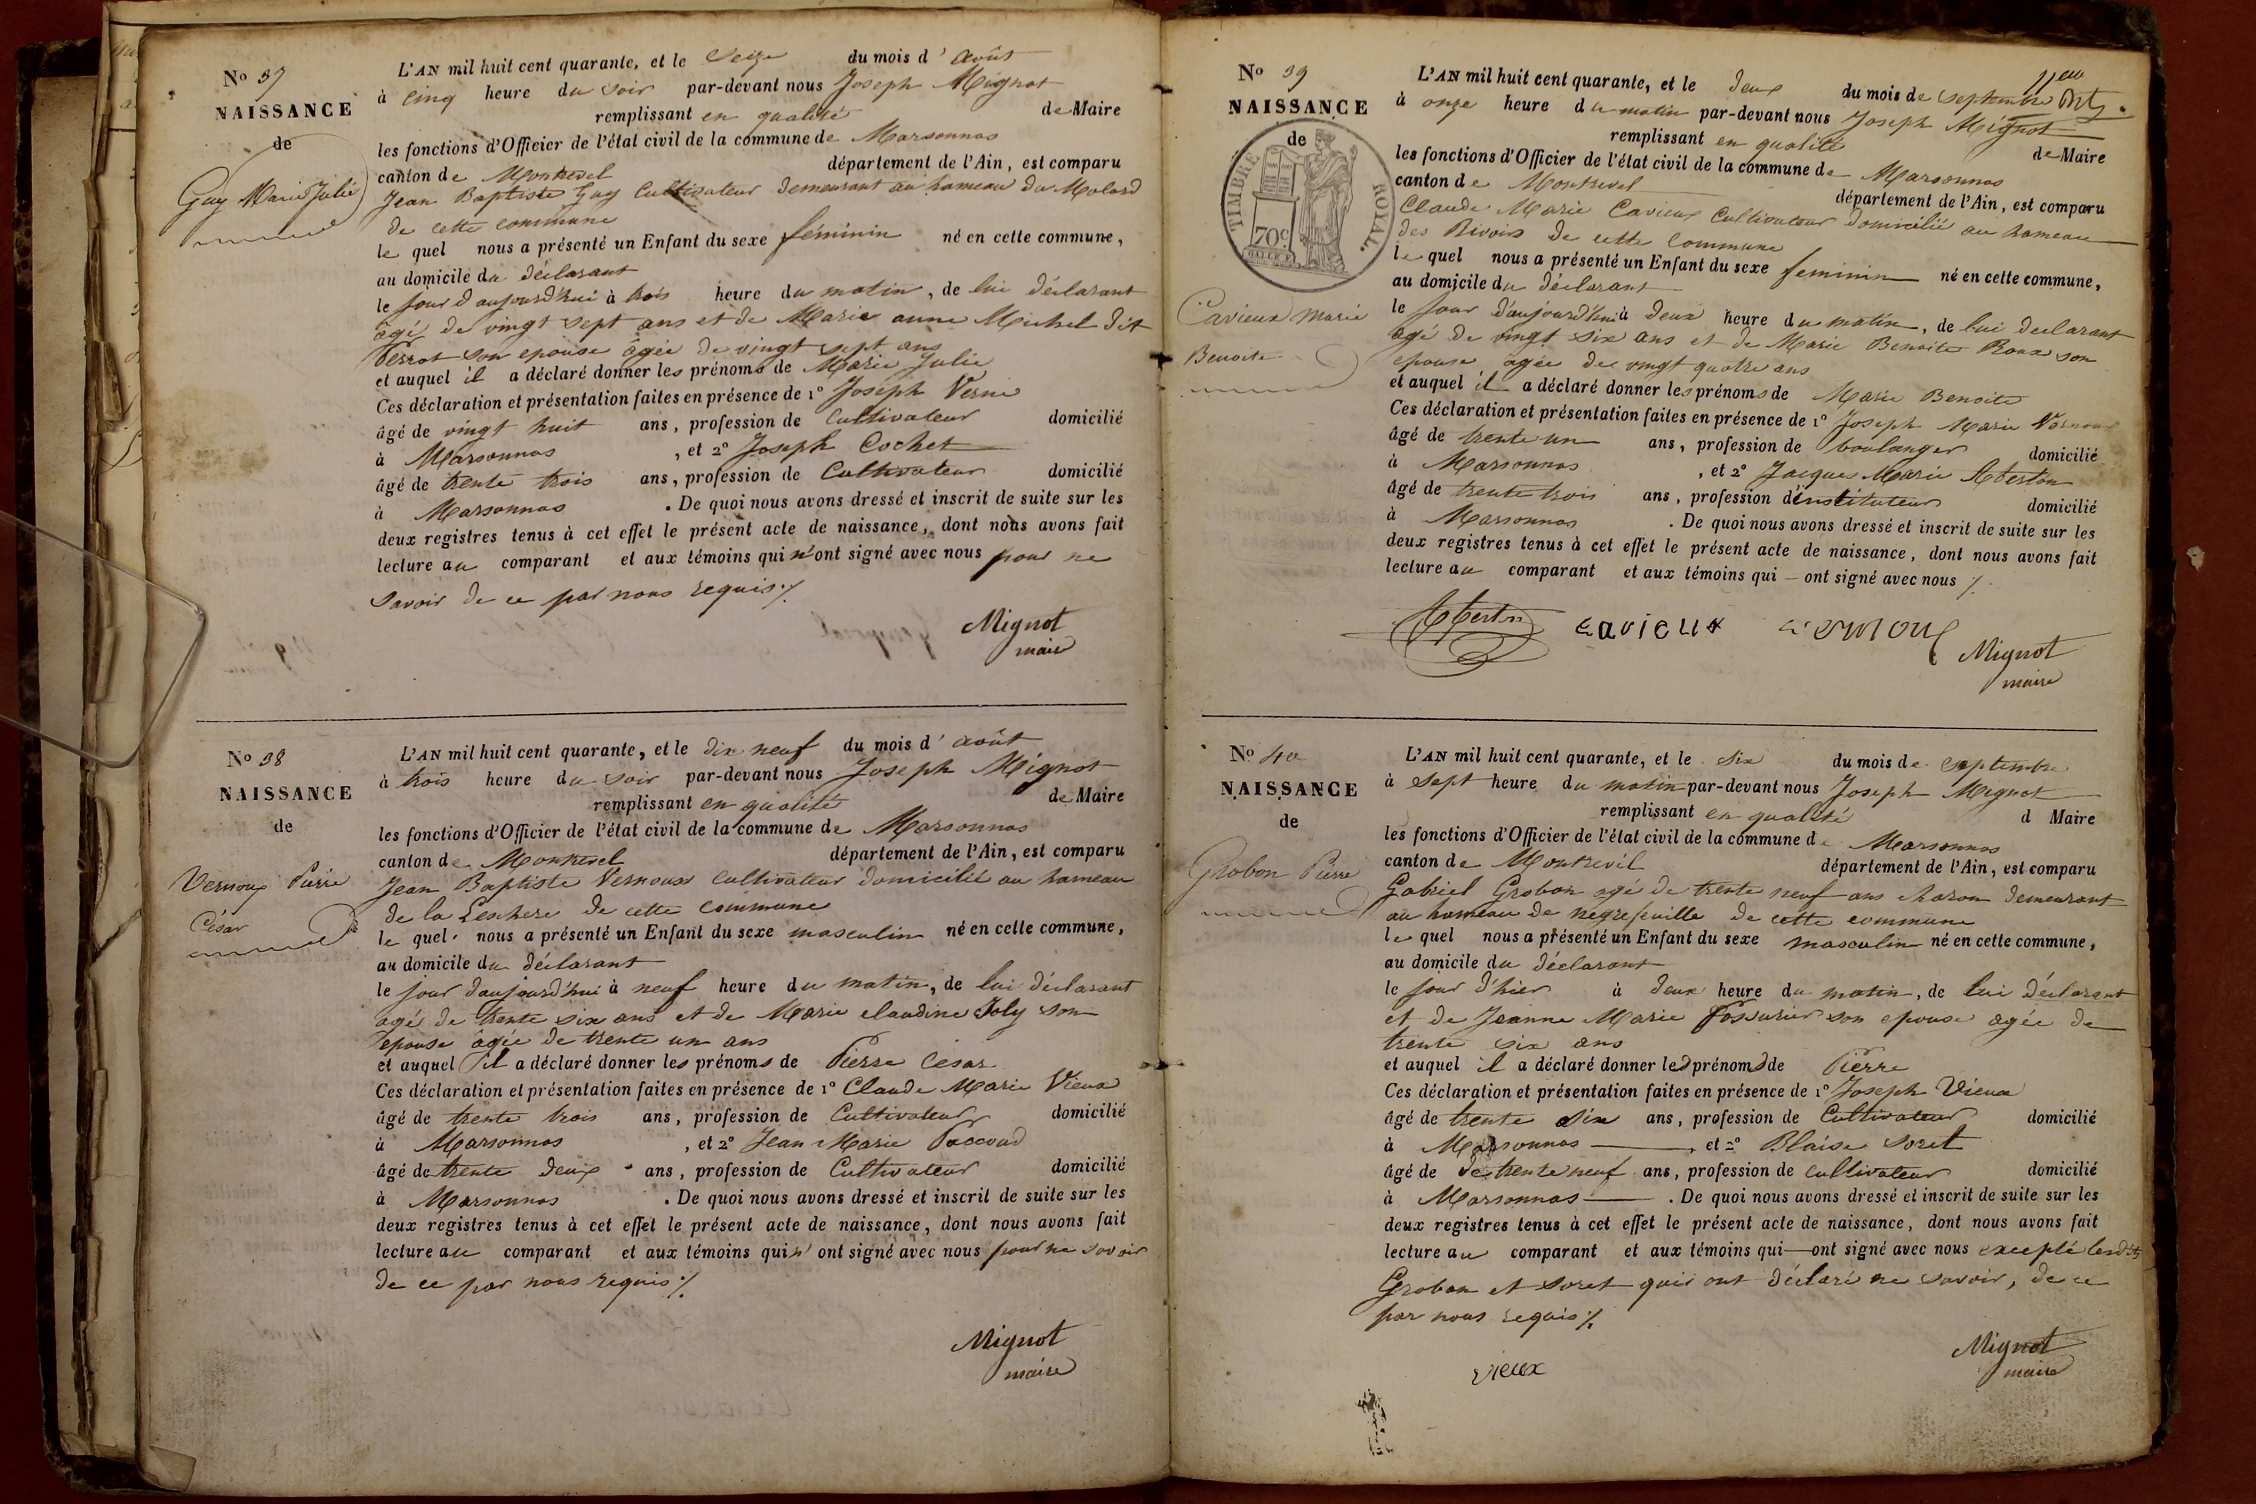 No 37
NAISSANCE
de
Guy Marie Julie
L'AN mil huit cent quarante, et le seize du mois d' août
à cinq heure du soir par-devant nous Joseph Mignot
remplissant en qualité de Maire
les fonctions d'Officier de l'état civil de la commune de Marsonnas
canton de Montrevel département de l'Ain, est comparu
Jean Baptiste Guy Cultivateur demeurant au hameau du Molard
de cette commune
le quel nous a présenté un Enfant du sexe féminin né en cette commune,
au domicile du déclarant
le jour d'aujourd'hui à trois heure du matin, de lui déclarant
âgé de vingt sept ans et de Marie anne Michel dit
Perrot son epouse âgée de vingt sept ans
et auquel il a déclaré donner les prénoms de Marie Julie
Ces déclaration et présentation faites en présence de 1º Joseph Verne
âgé de vingt huit ans, profession de Cultivateur domicilié
à Marsonnas, et 2º Joseph Cochet
âgé de trente trois ans, profession de Cultivateur domicilié
à Marsonnas. De quoi nous avons dressé et inscrit de suite sur les
deux registres tenus à cet effet le présent acte de naissance, dont nous avons fait
lecture au comparant et aux témoins qui n'ont signé avec nous pour ne
savoir de ce par nous requis ./.
Mignot
maire
No 38
NAISSANCE
de
Vernoux Pierre
César
L'AN mil huit cent quarante, et le dix neuf du mois d' août
à trois heure du soir par-devant nous Joseph Mignot
remplissant en qualité de Maire
les fonctions d'Officier de l'état civil de la commune de Marsonnas
canton de Montrevel département de l'Ain, est comparu
Jean Baptiste Vernoux cultivateur domicilié au hameau
de la Leschere de cette commune
le quel nous a présenté un Enfant du sexe masculin né en cette commune,
au domicile du déclarant
le jour d'aujourd'hui à neuf heure du matin, de lui déclarant
agé de trente six ans et de Marie claudine Joly son
epouse âgée de trente un ans
et auquel il a déclaré donner les prénoms de Pierre César
Ces déclaration et présentation faites en présence de 1º Claude Marie Vieux
âgé de trente trois ans, profession de Cultivateur domicilié
à Marsonnas, et 2º Jean Marie Paccoud
âgé de trente deux ans, profession de Cultivateur domicilié
à Marsonnas. De quoi nous avons dressé et inscrit de suite sur les
deux registres tenus à cet effet le présent acte de naissance, dont nous avons fait
lecture au comparant et aux témoins qui n' ont signé avec nous pour ne savoir
de ce par nous requis ./.
Mignot
maire
No 39
NAISSANCE
de
TIMBRE ROYAL.
70c
Cavieux Marie
Benoite
L'AN mil huit cent quarante, et le deux du mois de septembre
à onze heure du matin par-devant nous Joseph Mignot
remplissant en qualité de Maire
les fonctions d'Officier de l'état civil de la commune de Marsonnas
canton de Montrevel département de l'Ain, est comparu
Claude Marie Cavieux Cultivateur domicilié au hameau
des Rivoirs de cette commune
le quel nous a présenté un Enfant du sexe feminin né en cette commune,
au domicile du déclarant
le jour d'aujourd'hui à deux heure du matin, de lui declarant
agé de vingt six ans et de Marie Benoite Roux son
epouse âgée de vingt quatre ans
et auquel il a déclaré donner les prénoms de Marie Benoite
Ces déclaration et présentation faites en présence de 1º Joseph Marie Vernoux
âgé de trente un ans, profession de boulanger domicilié
à Marsonnas, et 2º Jacques Marie
âgé de trente trois ans, profession d'instituteur domicilié
à Marsonnas. De quoi nous avons dressé et inscrit de suite sur les
deux registres tenus à cet effet le présent acte de naissance, dont nous avons fait
lecture au comparant et aux témoins qui — ont signé avec nous ./.
cavieux vernoux
Mignot
maire
No 40
NAISSANCE
de
Grobon Pierre
L'AN mil huit cent quarante, et le six du mois de septembre
à sept heure du matin par-devant nous Joseph Mignot
remplissant en qualité d Maire
les fonctions d'Officier de l'état civil de la commune de Marsonnas
canton de Montrevel département de l'Ain, est comparu
Gabriel Grobon agé de trente neuf ans charon demeurant
au hameau de negrefeuille de cette commune
le quel nous a présenté un Enfant du sexe masculin né en cette commune,
au domicile du déclarant
le jour d'hier à deux heure du matin, de lui déclarant
et de Jeanne Marie son epouse agée de
trente six ans
et auquel il a déclaré donner les prénoms de Pierre
Ces déclaration et présentation faites en présence de 1º Joseph Vieux
âgé de trente six ans, profession de Cultivateur domicilié
à Marsonnas, et 2º Blaise Soret
âgé de de trente neuf ans, profession de cultivateur domicilié
à Marsonnas. De quoi nous avons dressé et inscrit de suite sur les
deux registres tenus à cet effet le présent acte de naissance, dont nous avons fait
lecture au comparant et aux témoins qui — ont signé avec nous excepté lesdits
Grobon et Soret qui ont déclaré ne savoir, de ce
par nous requis ./.
Mignot
maire
vieux